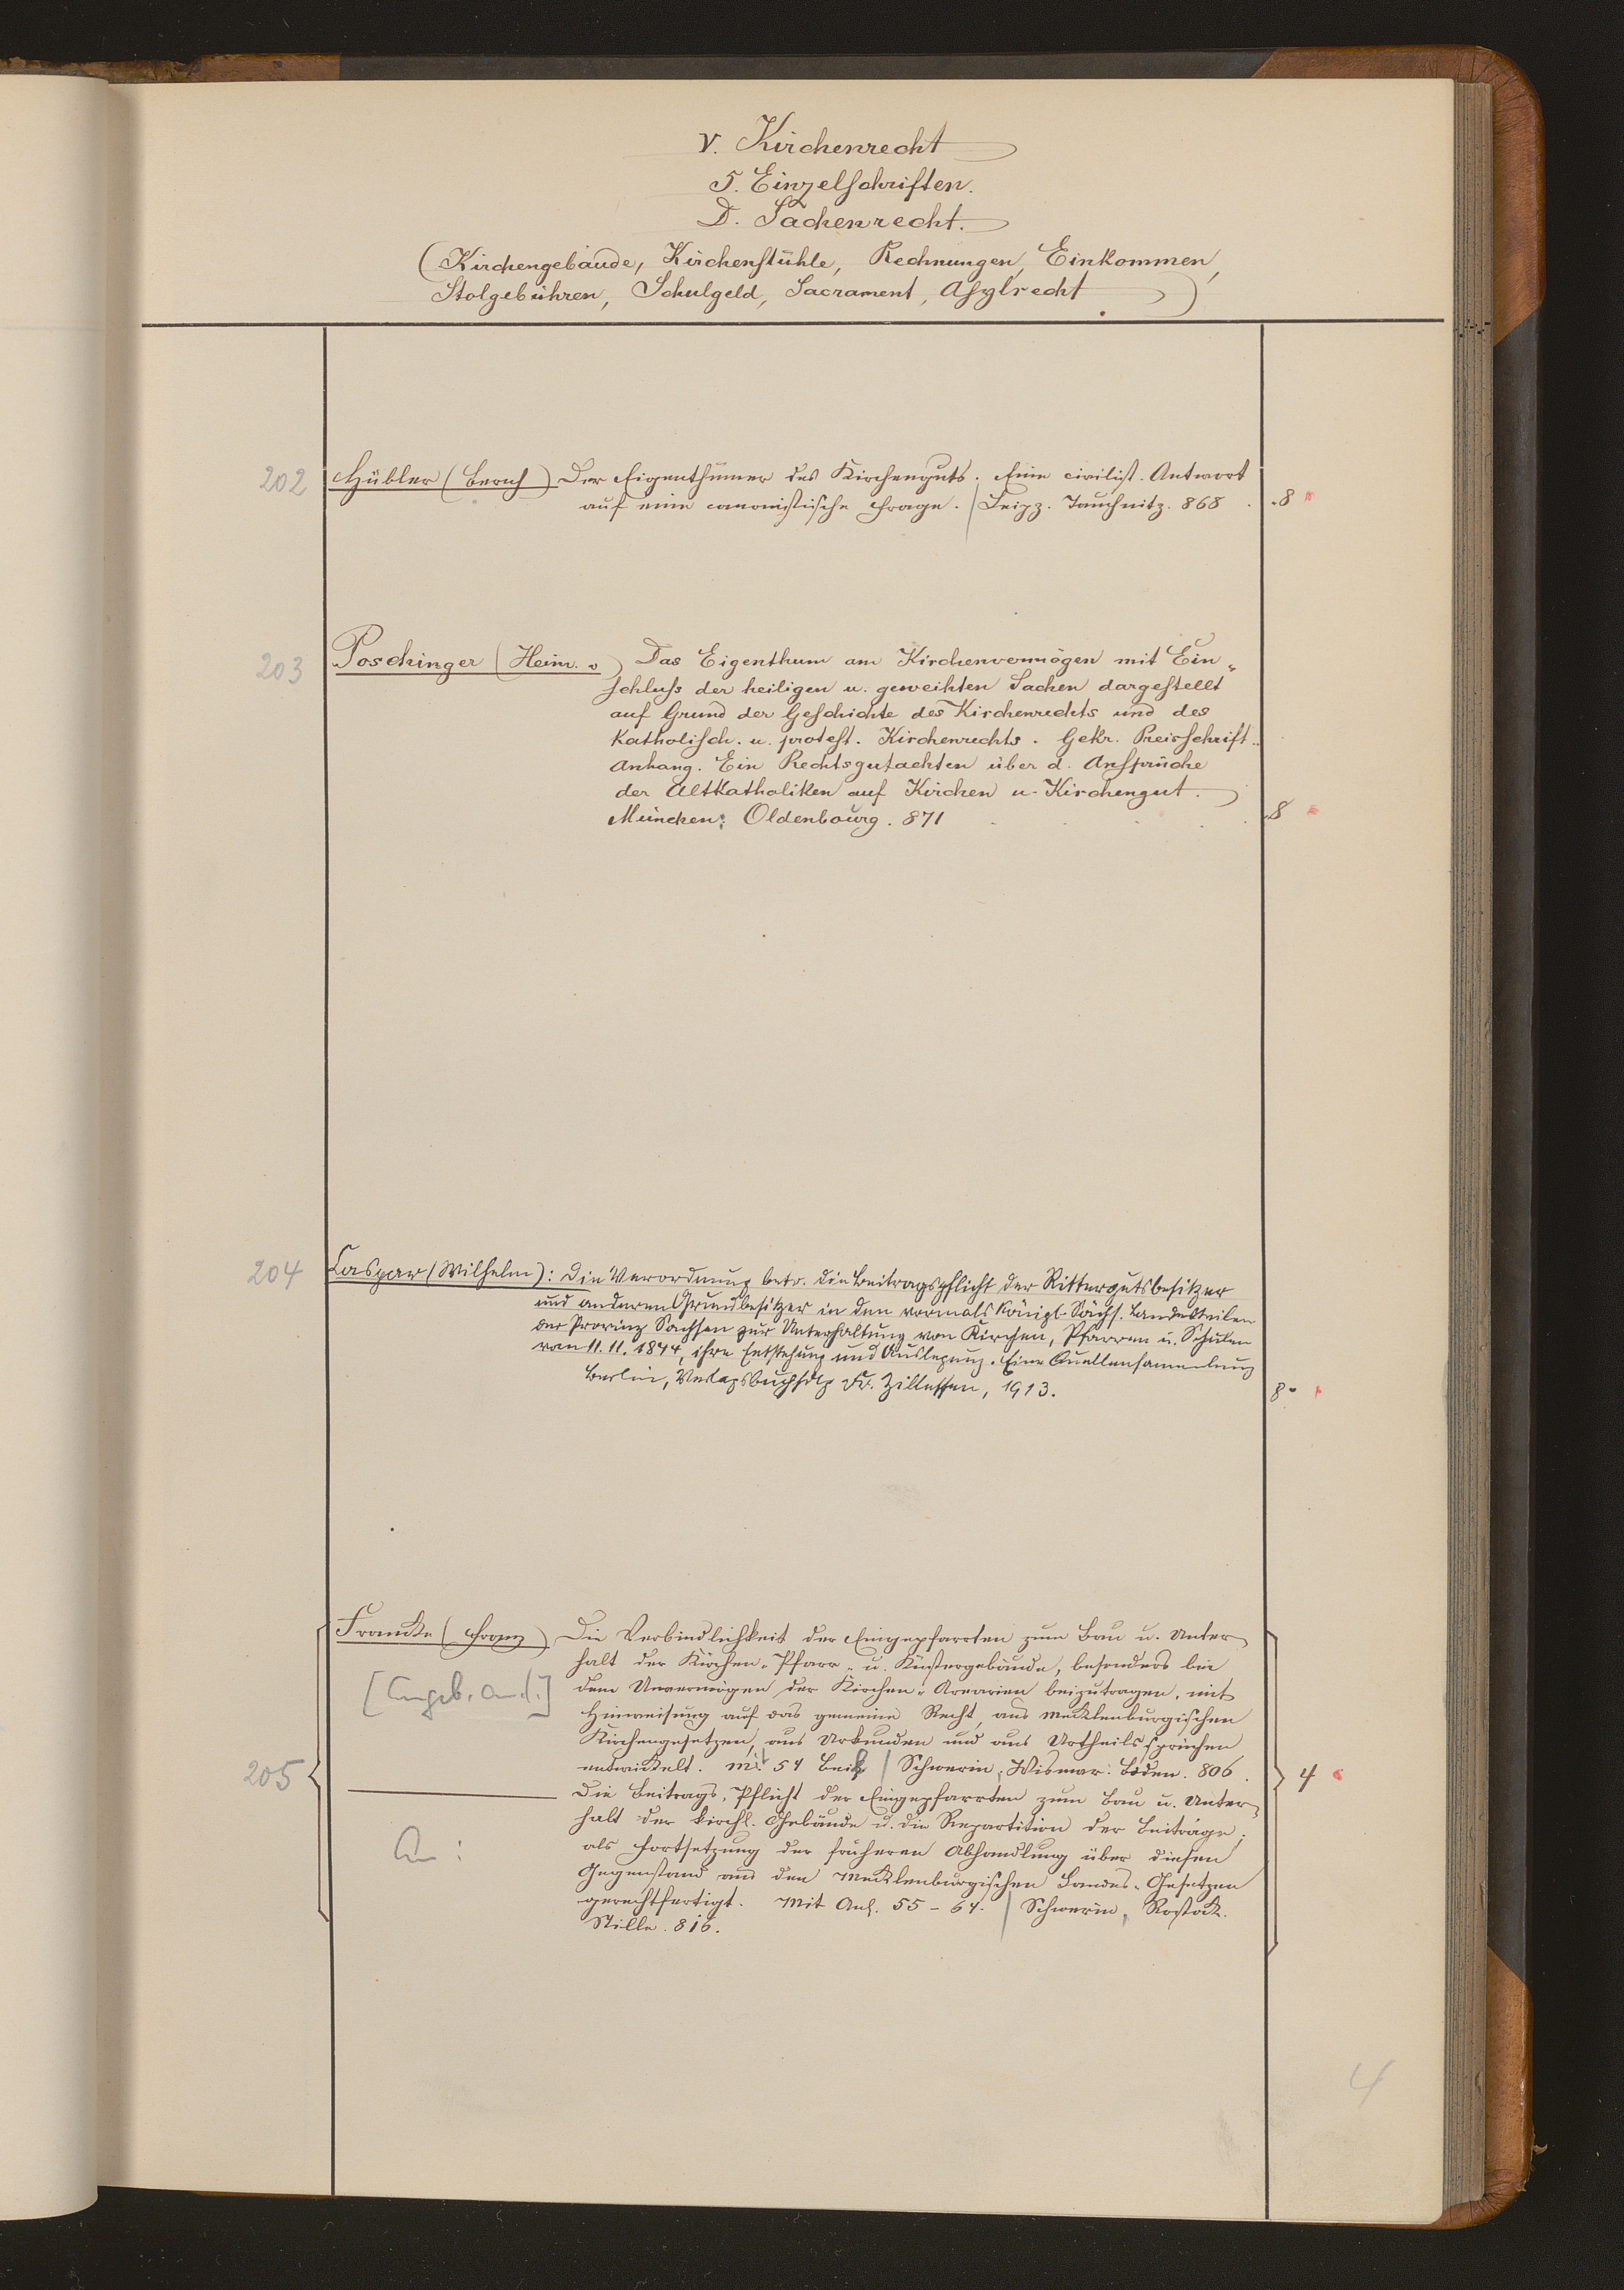 V. Kirchenrecht
5. Einzelschriften.
D. Sachenrecht.
(Kirchengebäude, Kirchenstühle, Rechnungen, Einkommen,
Stolgebühren, Schulgeld, Sacrament, Asylrecht)
202 Hübler (Bernh) Der Eigenthümer des Kirchenguts. Eine civilist. Antwort
auf eine canonistische Frage. | Leipz. Tauchnitz. 868 . 8
203 Poschinger (Heinr. v) Das Eigenthum am Kirchenvermögen mit Ein-
schluss der heiligen u. geweihten Sachen dargestellt
auf Grund der Geschichte des Kirchenrechts und des
Katholisch. u. protest. Kirchenrechts. Gekr. Preisschrift.
Anhang. Ein Rechtsgutachten über d. Ansprüche
der Altkatholiken auf Kirchen u. Kirchengut.
München: Oldenbourg. 871 . 8
204 Caspar (Wilhelm): Die Verordnung betr. die Beitragspflicht der Rittergutsbesitzer
und anderen Grundbesitzer in den vormals Königl. Sächs. Landesteilen
der Provinz Sachsen zur Unterhaltung von Kirchen, Pfarren u. Schulen
vom 11. 11. 1844, ihre Entstehung und Auslegung. Eine Quellensammlung
Berlin, Verlagsbuchhdlg Fr. Zillessen, 1913. 8°
Francke (Franz) Die Verbindlichkeit der Eingepfarrten zum Bau u. Unter-
halt der Kirchen- Pfarr- u. Küstergebäude, besonders bei
[Angeb. an d.] dem Unvermögen der Kirchen-Aerarien beizutragen, mit
Hinweisung auf das gemeine Recht, aus Mecklenburgischen
Kirchengesetzen, aus Urkunden und aus Urtheilssprüchen
205 entwickelt. Mit 54 Beil | Schwerin, Wismar: Böden. 806. 4
Die Beitrags-Pflicht der Eingepfarrten zum Bau u. Unter-
halt der kirchl. Gebäude u. die Repartition der Beiträge;
An: als Fortsetzung der früheren Abhandlung über diesen
Gegenstand aus den Mecklenburgischen Landes-Gesetzen
gerechtfertigt. Mit Anl. 55-64. | Schwerin, Rostock.
Stiller. 816.
4